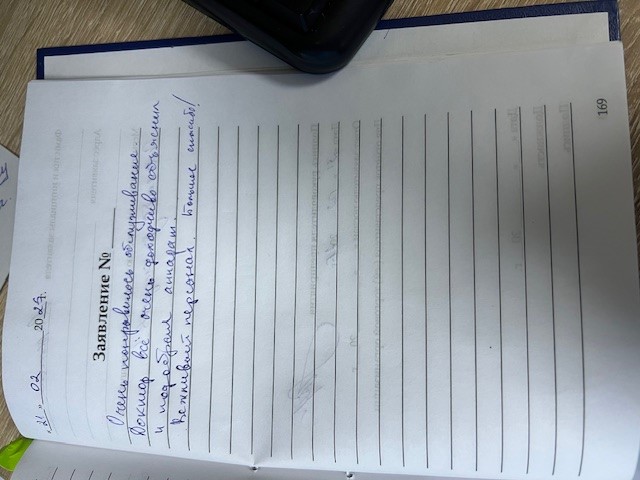 "21" 02 2025 г.
Заявление №
Очень понравилось обслуживание.
Доктор всё очень доходчиво объяснил
и подобрал аппарат.
Вежливый персонал. Большое спасибо!
169